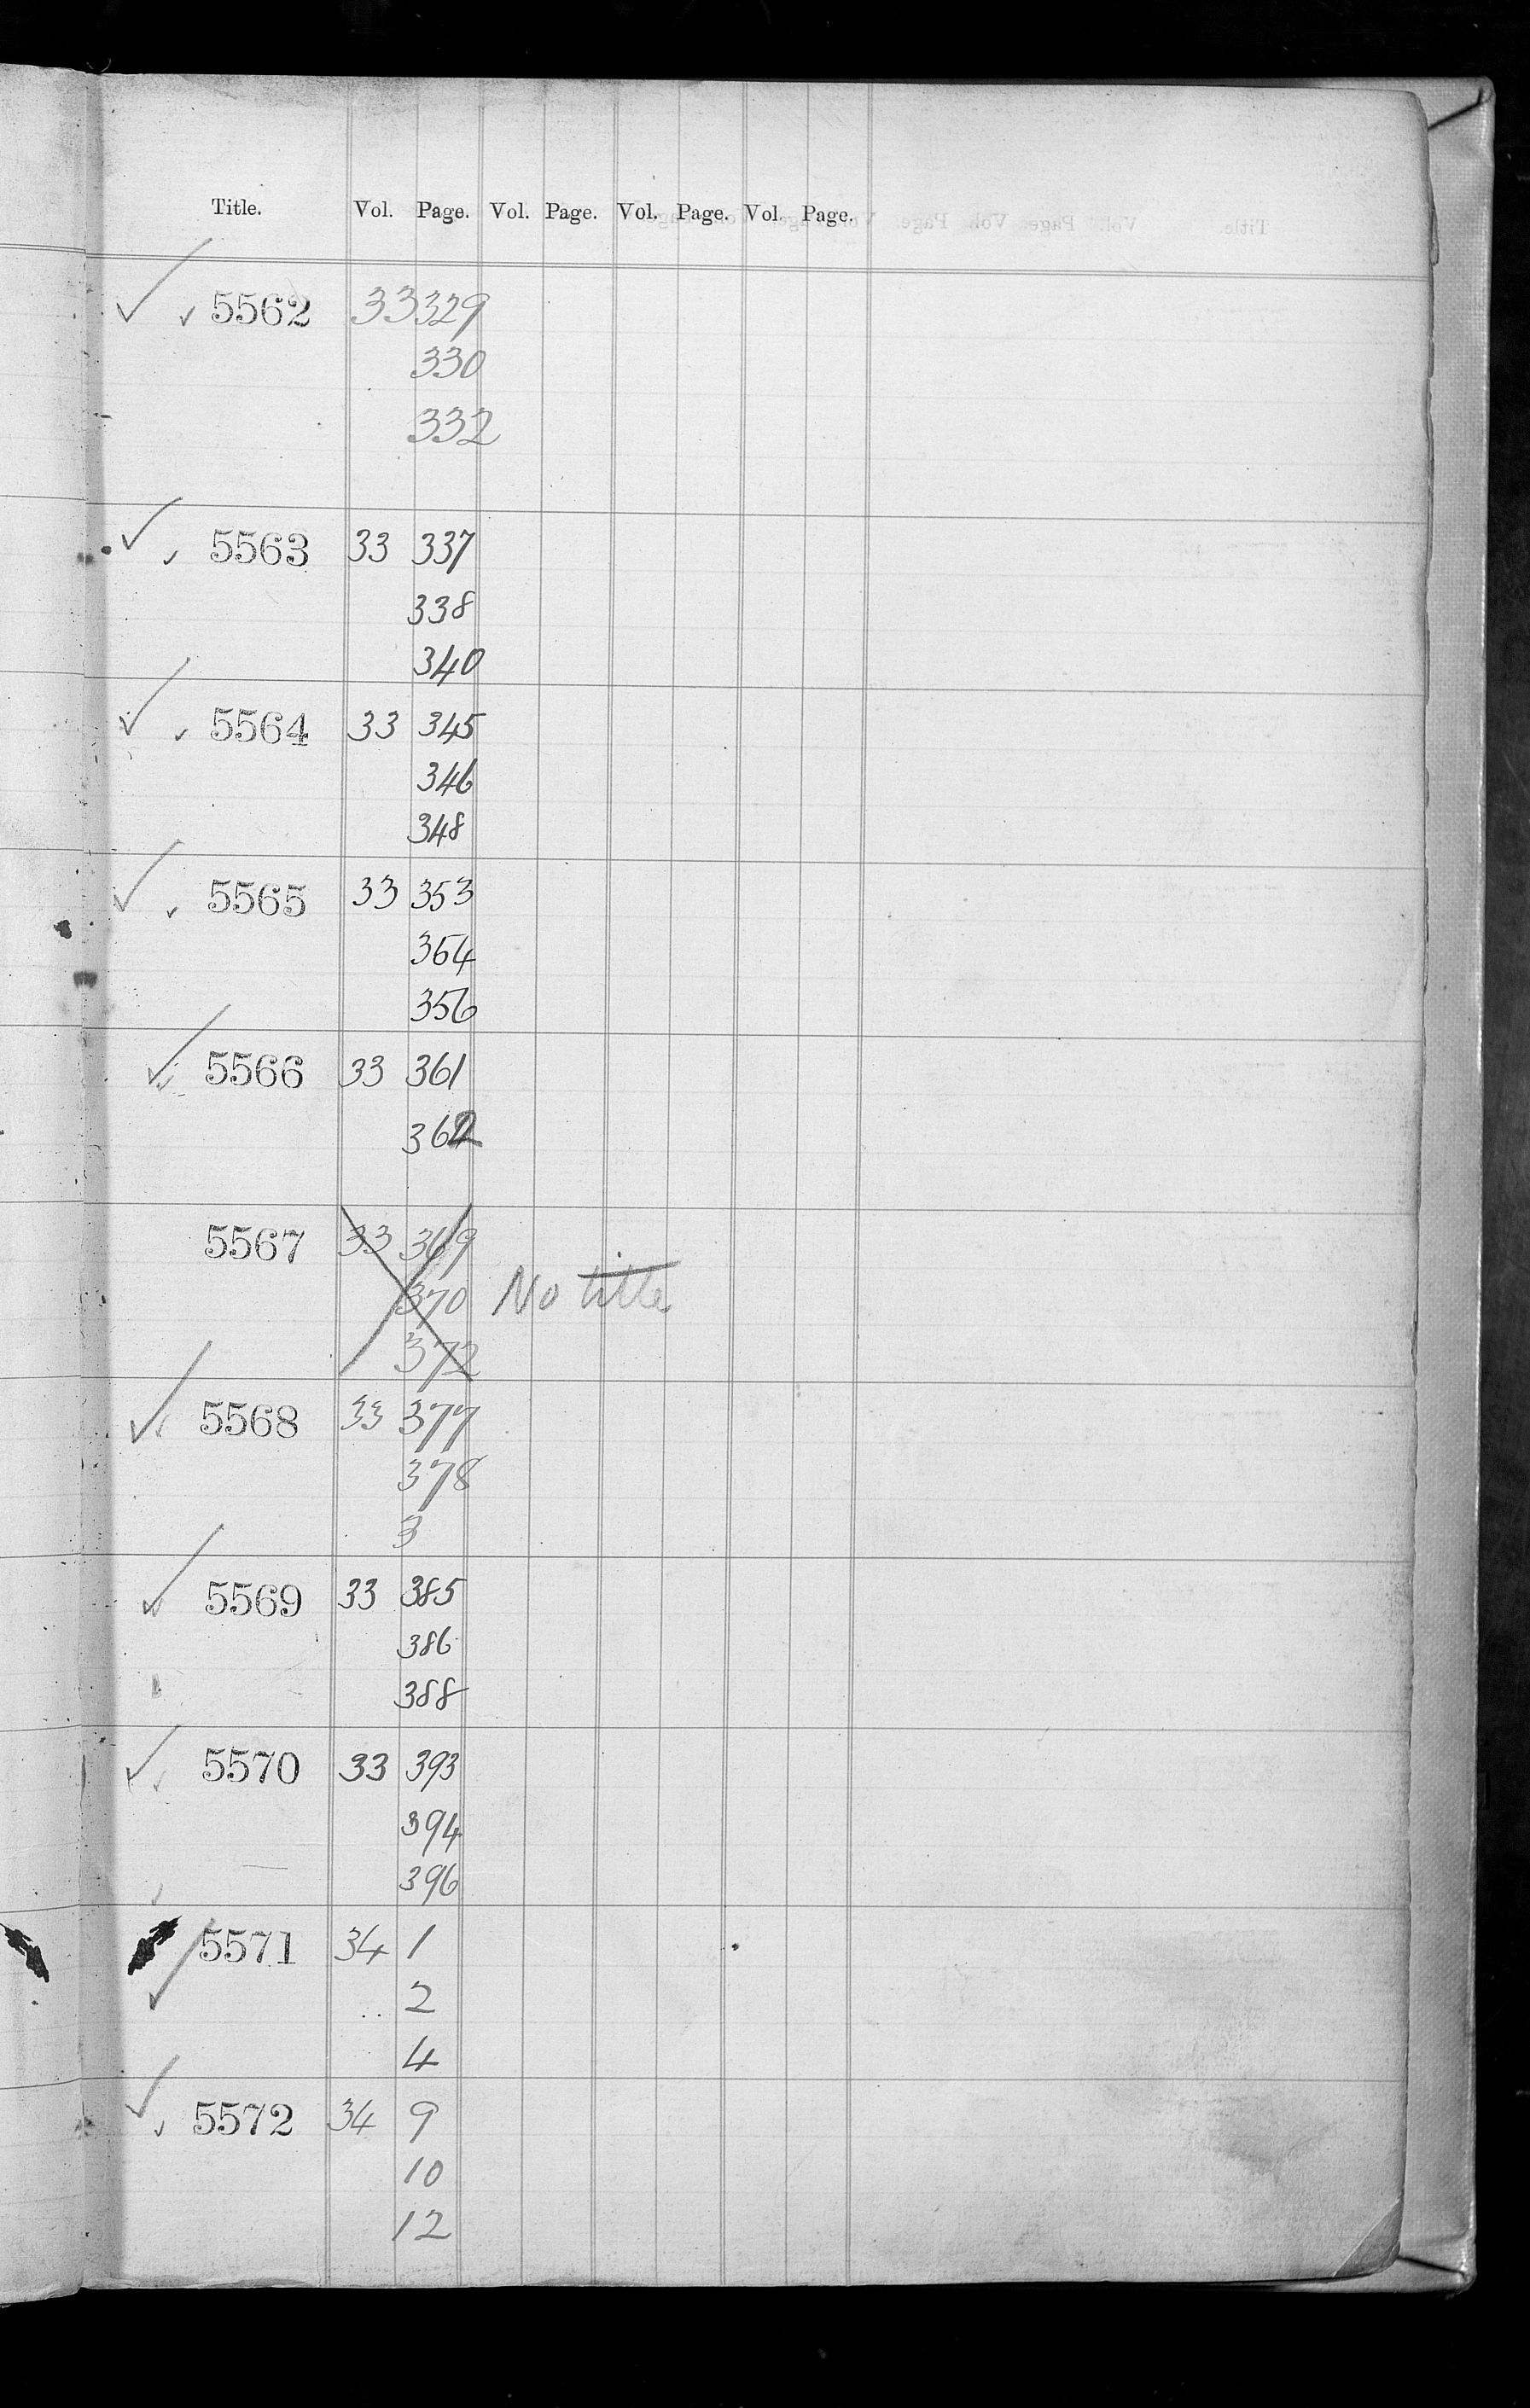 Title. Vol. Page. Vol. Page. Vol. Page. Vol. Page.
5562 33 329
330
332
5563 33 337
338
340
5564 33 345
346
348
5565 33 353
354
356
5566 33 361
362
5567 33 369
370 No title
372
5568 33 377
378
3
5569 33 385
386
388
5570 33 393
394
396
5571 34 1
2
4
5572 34 9
10
12